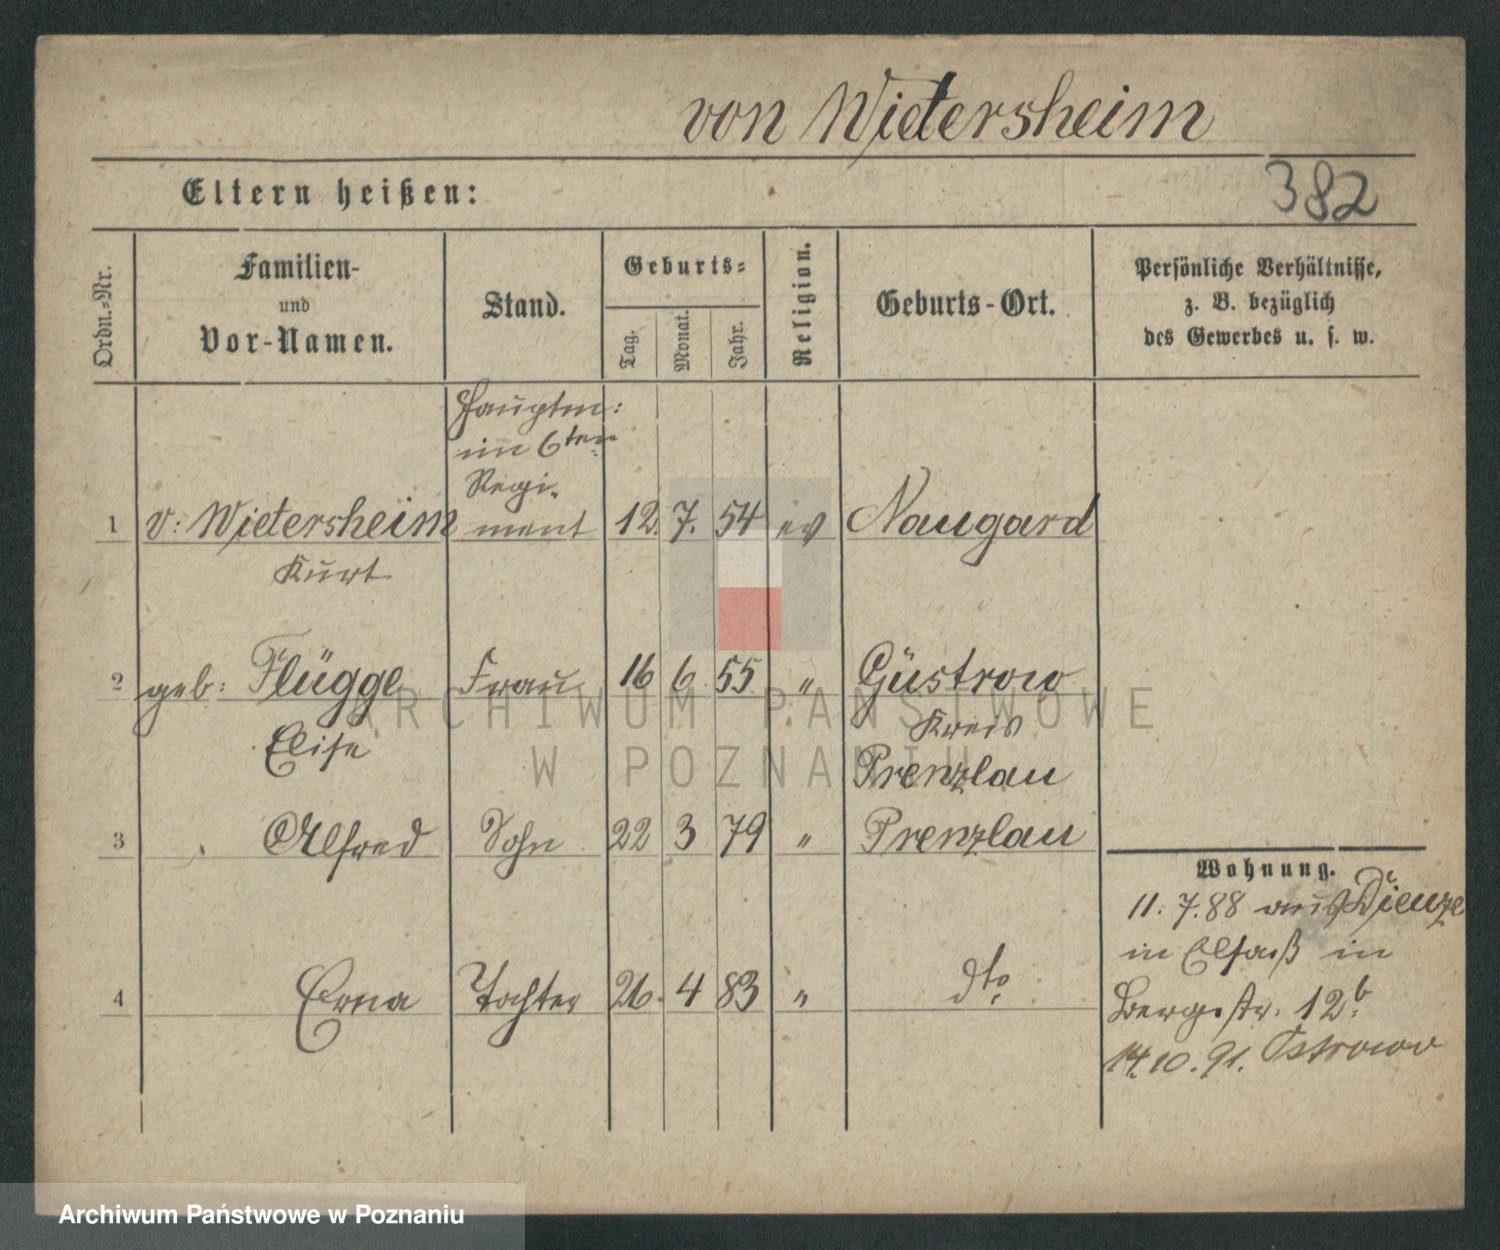 von Wietersheim
Eltern heißen:
382
Ordn.-Nr.
Familien-
und
Vor-Namen.
Stand.
Geburts-
Tag.
Monat.
Jahr.
Religion.
Geburts-Ort.
Persönliche Verhältnisse,
z. B. bezüglich
des Gewerbes u. s. w.
Hauptm:
im 6ten
Regi-
1 v: Wietersheim ment 12. 7. 54 ev Naugard
Kurt
2 geb: Flügge Frau 16 6 55 " Güstrow
Kreis
Elise
Prenzlau
3 Alfred Sohn 22 3 79 " Prenzlau
4 Erna Tochter 26. 4 83 " dto.
Wohnung.
11. 7. 88 aus Dieuze
in Elsaß in
Bergstr. 12b.
14.10.91. Ostrowo
ARCHIWUM PAŃSTWOWE
W POZNANIU
Archiwum Państwowe w Poznaniu